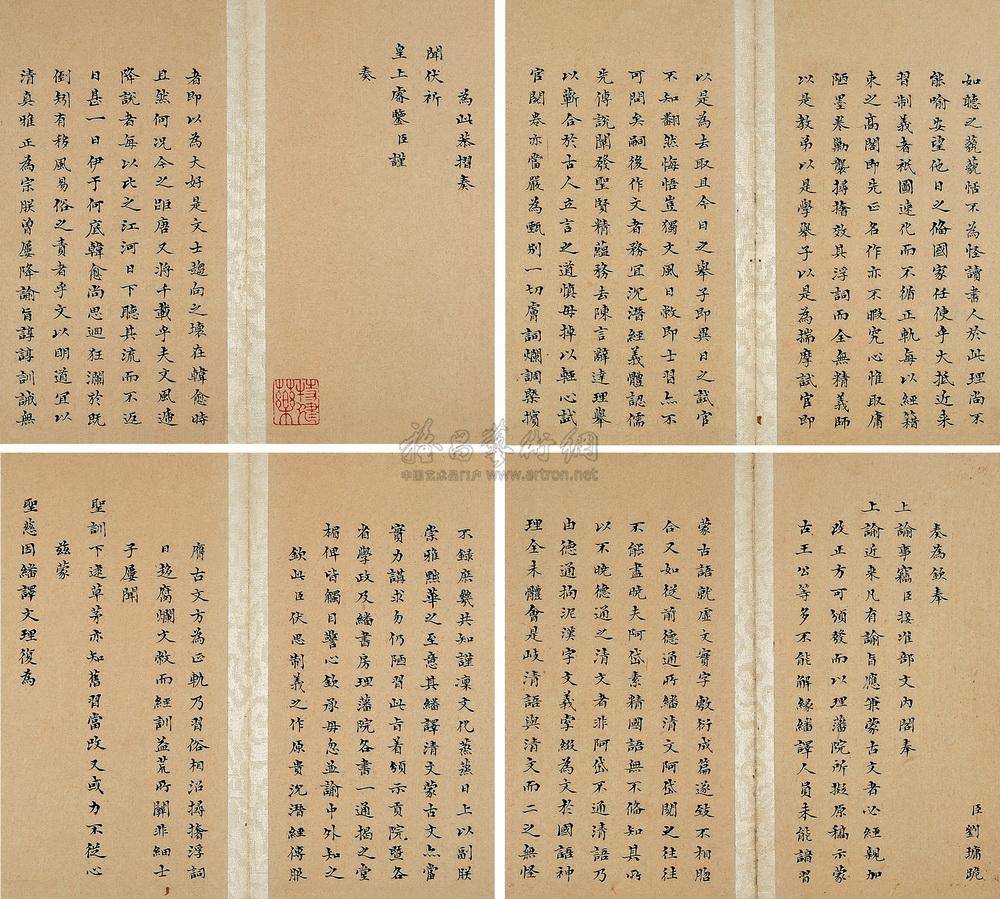 臣劉墉跪
奏為欽奉
上諭事竊臣接准部文內閣奉
上諭近來凡有諭旨應兼蒙古文者必經親加
改正方可頒發而以理藩院所擬原稿示蒙
古王公等多不能解緣繙譯人員未能諳習
蒙古語就虛文實字敷衍成篇遂致不相脗
合又如從前德通所繙清文阿岱閱之往往
不能盡曉夫阿岱素精國語無不備知其所
以不曉德通之清文者非阿岱不通清語乃
由德通拘泥漢字文義牽綴為文於國語神
理全未體會是歧清語與清文而二之無怪
者即以為大好是文士趨向之壞在韓愈時
且然何況今之距唐又將千載乎夫文風遞
降說者每以比之江河日下聽其流而不返
日甚一日伊于何底韓愈尚思迴狂瀾於既
倒矧有移風易俗之責者乎文以明道宜以
清真雅正為宗朕曾屢降諭旨諄諄訓誡無
如聽之藐藐恬不為怪讀書人於此理尚不
能喻安望他日之備國家任使乎大抵近來
習制義者祇圖速化而不循正軌每以經籍
束之高閣即先正名作亦不暇究心惟取庸
陋墨卷勦襲撏撦效其浮詞而全無精義師
以是教弟以是學舉子以是為揣摩試官即
以是為去取且今日之舉子即異日之試官
不知翻然悔悟豈獨文風日敝即士習亦不
可問矣嗣後作文者務宜沉潛經義體認儒
先傳說闡發聖賢精蘊務去陳言辭達理舉
以蘄合於古人立言之道慎毋掉以輕心試
官閱卷亦當嚴為甄別一切膚詞爛調槩擯
不錄庶幾共知謹凜文化蒸蒸日上以副朕
崇雅黜華之至意其繙譯清文蒙古文亦當
實力講求勿仍陋習此旨着頒示貢院暨各
省學政及繙書房理藩院各書一通揭之堂
楣俾皆觸目警心欽承毋忽並諭中外知之
欽此臣伏思制義之作原貴沉潛經傳服
膺古文方為正軌乃習俗相沿撏撦浮詞
日趨腐爛文敝而經訓益荒所關非細士
子屢聞
聖訓下逮草茅亦知舊習當改又或力不從心
茲蒙
聖慈因繙譯文理復為
為此恭摺奏
聞伏祈
皇上睿鑒臣謹
奏
中国艺术品门户 www.artron.net